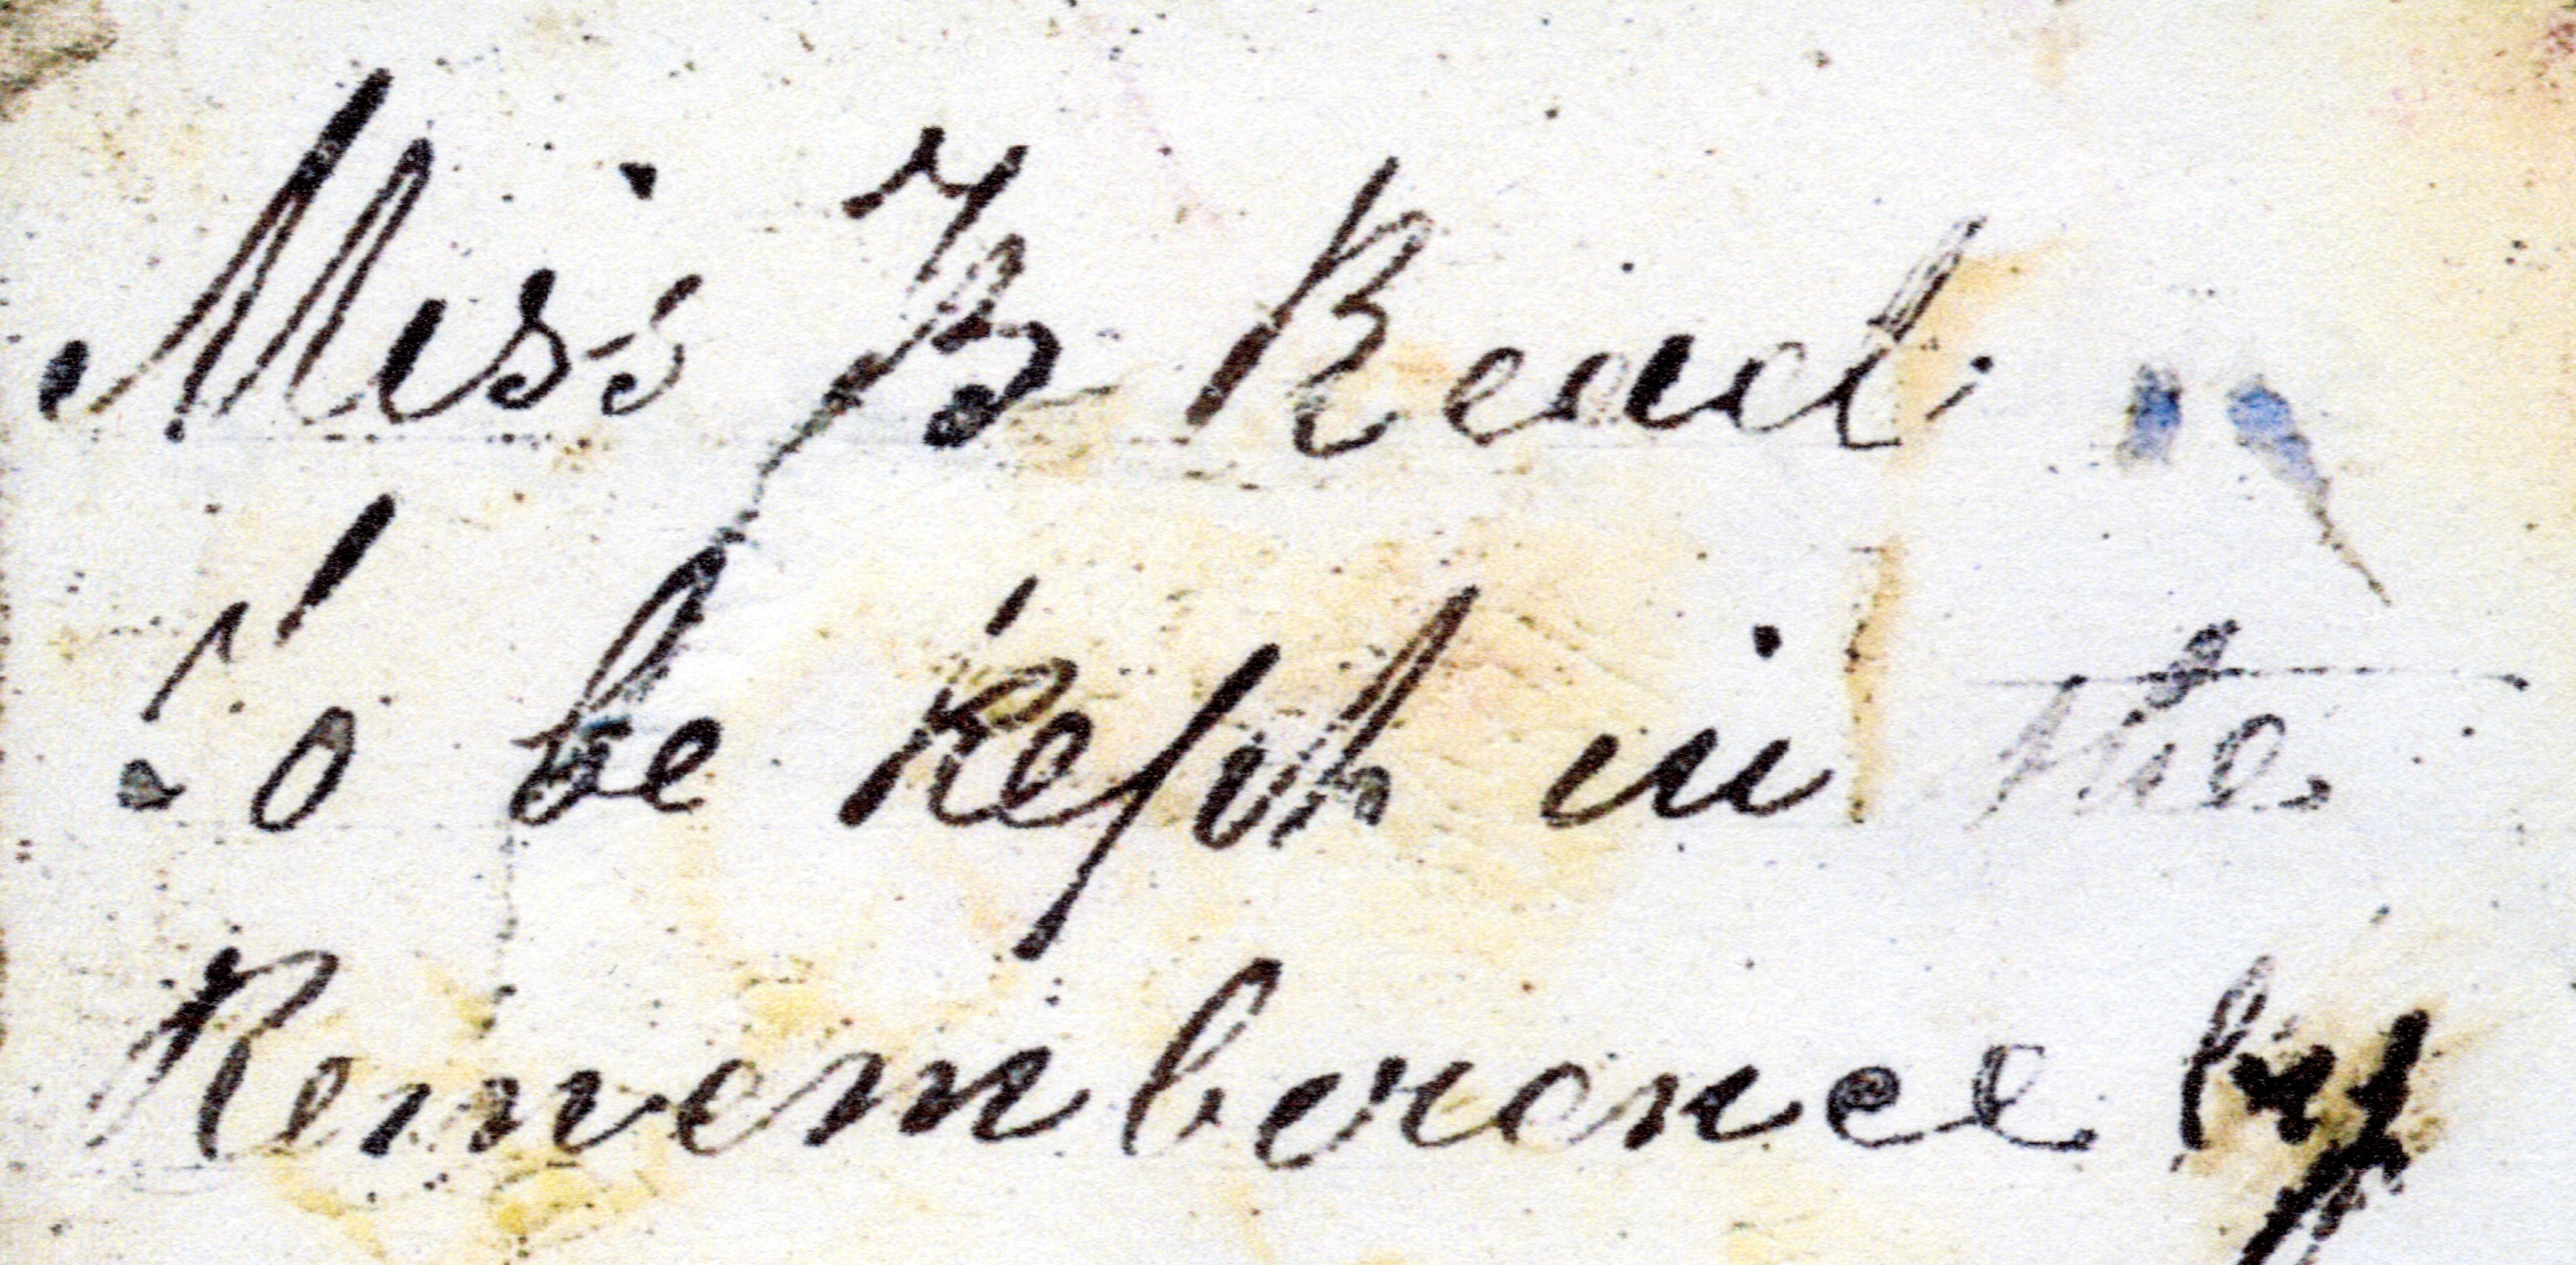 Miss B Read.
to be Kept in the
Rememberence by